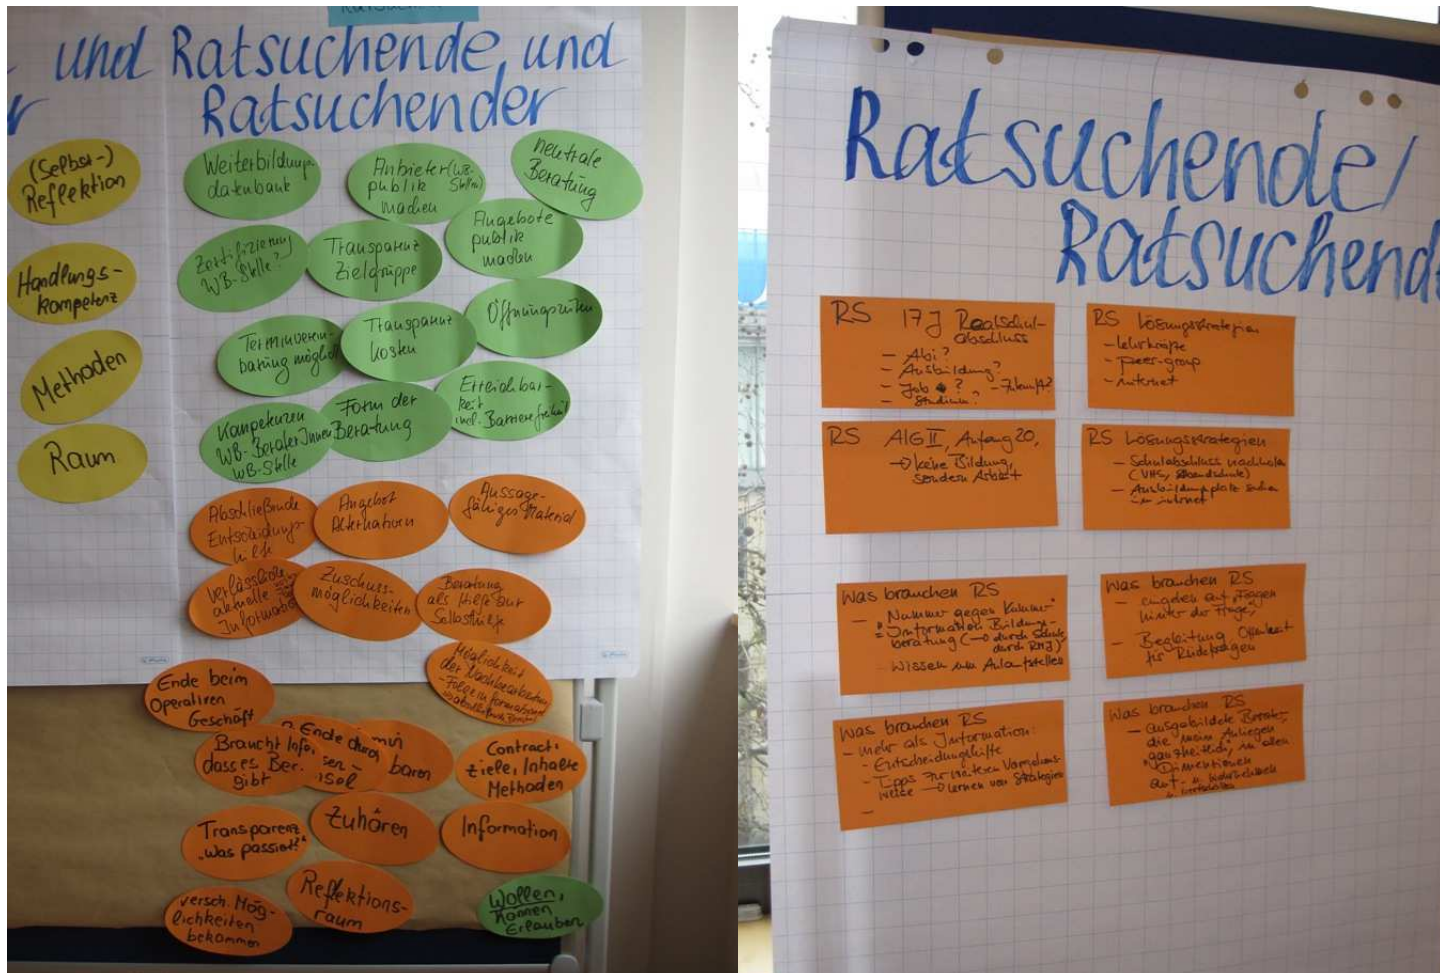 und Ratsuchende und
Ratsuchender
(Selbst-)
Reflektion
Handlungs-
kompetenz
Methoden
Raum
Weiterbildungs
datenbank
Anbieter (WB-
publik Stellen)
machen
neutrale
Beratung
Zertifizierung
WB-Stelle?
Transparenz
Zielgruppe
Angebote
publik
machen
Terminverein-
barung möglich
Transparenz
Kosten
Öffnungszeiten
Kompetenzen
WB-BeraterInnen
WB-Stelle
Form der
Beratung
Erreichbar-
keit
incl. Barrierefreiheit
Abschließende
Entscheidungs-
hilfe
Angebot
Alternativen
Aussage-
fähiges Material
Verlässliche
aktuelle
Information
Zuschuss-
möglichkeiten
Beratung
als Hilfe zur
Selbsthilfe
Möglichkeit
der Nachbearbeitung
Ende beim
Operativen
Geschäft
Braucht Info,
dass es Ber.
gibt
Ende durch
Contract:
Ziele, Inhalte
Methoden
Transparenz
„Was passiert?“
Zuhören
Information
versch. Mög-
lichkeiten
bekommen
Reflektions-
raum
Wollen,
Können
Erlauben
Ratsuchende/
Ratsuchende
RS 17 J Realschul-
abschluss
- Abi?
- Ausbildung?
- Job ? - Zukunft?
- Studium?
RS Lösungsstrategien
- Lehrkräfte
- peer-group
- internet
RS AlG II, Anfang 20,
→ keine Bildung,
sondern Arbeit
RS Lösungsstrategien
- Schulabschluss nachholen
(VHS, Abendschule)
- Ausbildungsplatz suchen
im internet
Was brauchen RS
- "Nummer gegen Kummer"
= Information Bildungs-
beratung (→ durch Schule
durch
- Wissen um Anlaufstellen
Was brauchen RS
- eingehen auf „Fragen
hinter der Frage“
- Begleitung, Offenheit
für Rückfragen
Was brauchen RS
- mehr als Information:
- Entscheidungshilfe
- Tipps zur weiteren Vorgehens-
weise → lernen von Strategien
-
Was brauchen RS
- ausgebildete Berater,
die mein Anliegen
ganzheitlich, in allen
Dimensionen